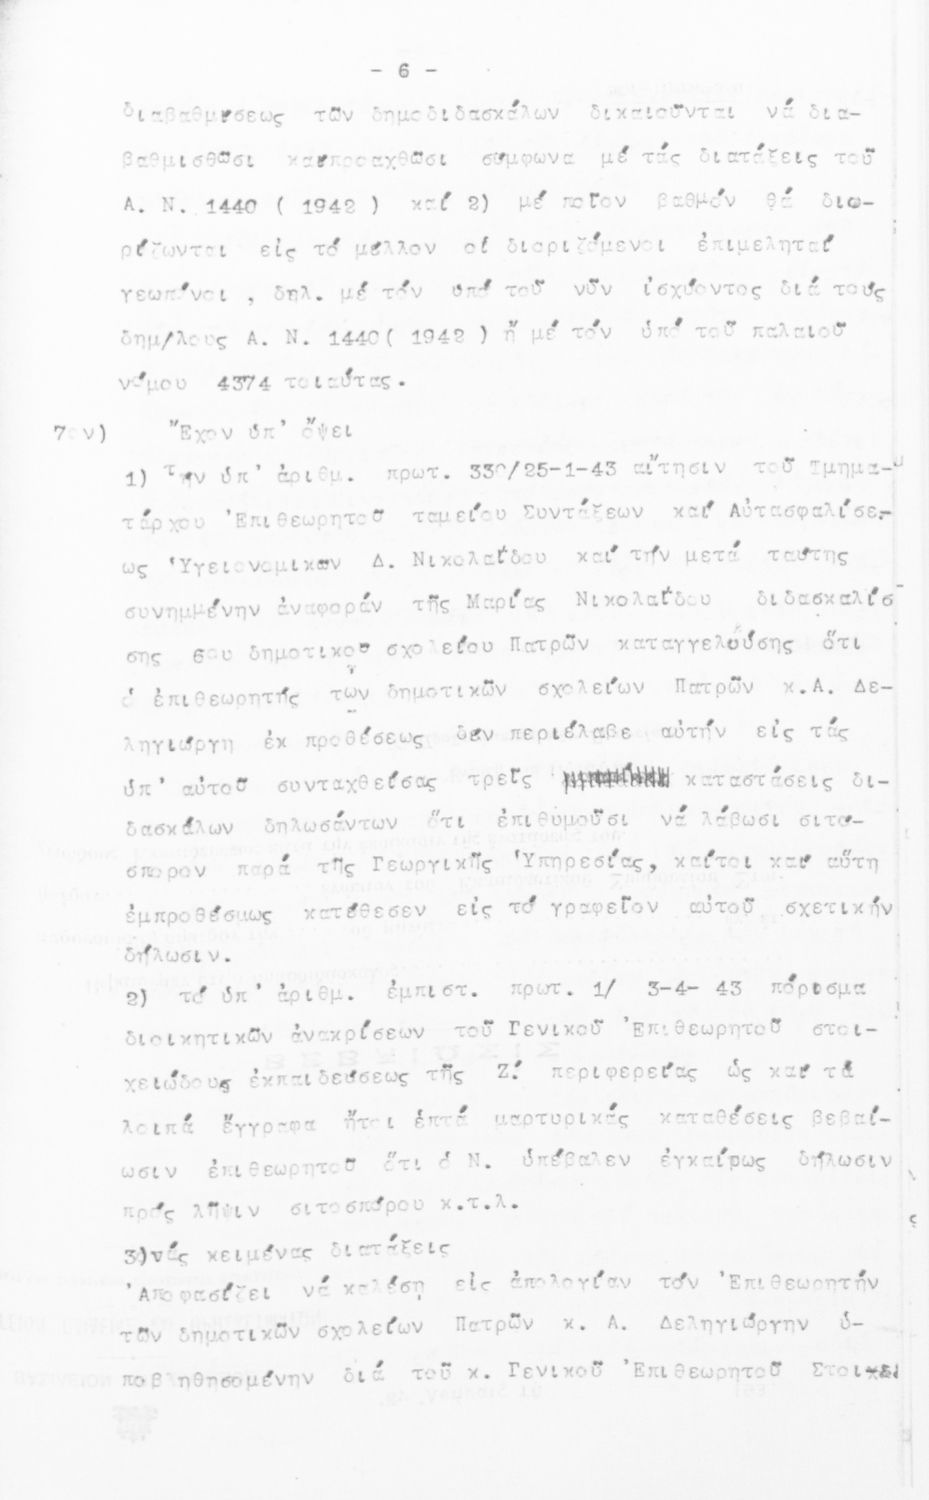 - 6 -
διαβαθμίσεως τῶν δημοδιδασκάλων δικαιοῦνται νά δια-
βαθμισθῶσι καί προαχθῶσι σύμφωνα μέ τάς διατάξεις τοῦ
Α. Ν. 1440 ( 1942 ) καί 2) μέ ποῖον βαθμόν θά διο-
ρίζωνται εἰς τό μέλλον οἱ διοριζόμενοι ἐπιμεληταί
γεωπόνοι , δηλ. μέ τόν ὑπό τοῦ νῦν ἰσχύοντος διά τούς
δημ/λους Α. Ν. 1440( 1942 ) ἤ μέ τόν ὑπό τοῦ παλαιοῦ
νόμου 4374 τοιαύτας.
7ον) Ἔχον ὑπ' ὄψει
1) Τήν ὑπ' ἀριθμ. πρωτ. 330/25-1-43 αἴτησιν τοῦ Τμημα-
τάρχου Ἐπιθεωρητοῦ ταμείου Συντάξεων καί Αὐτασφαλίσε-
ως Ὑγειονομικῶν Δ. Νικολαΐδου καί τήν μετά ταύτης
συνημμένην ἀναφοράν τῆς Μαρίας Νικολαΐδου διδασκαλίσ
σης 6ου δημοτικοῦ σχολείου Πατρῶν καταγγελούσης ὅτι
ὁ ἐπιθεωρητής τῶν δημοτικῶν σχολείων Πατρῶν κ.Α. Δε-
ληγιώργη ἐκ προθέσεως δέν περιέλαβε αὐτήν εἰς τάς
ὑπ' αὐτοῦ συνταχθείσας τρεῖς καταστάσεις δι-
δασκάλων δηλωσάντων ὅτι ἐπιθυμοῦσι νά λάβωσι σιτό-
σπορον παρά τῆς Γεωργικῆς Ὑπηρεσίας, καίτοι καί αὕτη
ἐμπροθέσμως κατέθεσεν εἰς τό γραφεῖον αὐτοῦ σχετικήν
δήλωσιν.
2) τό ὑπ' ἀριθμ. ἐμπιστ. πρωτ. 1/ 3-4- 43 πόρισμα
διοικητικῶν ἀνακρίσεων τοῦ Γενικοῦ Ἐπιθεωρητοῦ στοι-
χειώδους ἐκπαιδεύσεως τῆς Ζ! περιφερείας ὡς καί τά
λοιπά ἔγγραφα ἤτοι ἑπτά μαρτυρικάς καταθέσεις βεβαί-
ωσιν ἐπιθεωρητοῦ ὅτι ὁ Ν. ὑπέβαλεν ἐγκαίρως δήλωσιν
πρός λῆψιν σιτοσπόρου κ.τ.λ.
3)τάς κειμένας διατάξεις
Ἀποφασίζει νά καλέσῃ εἰς ἀπολογίαν τόν Ἐπιθεωρητήν
τῶν δημοτικῶν σχολείων Πατρῶν κ. Α. Δεληγιώργην ὑ-
ποβηθησομένην διά τοῦ κ. Γενικοῦ Ἐπιθεωρητοῦ Στοιχει